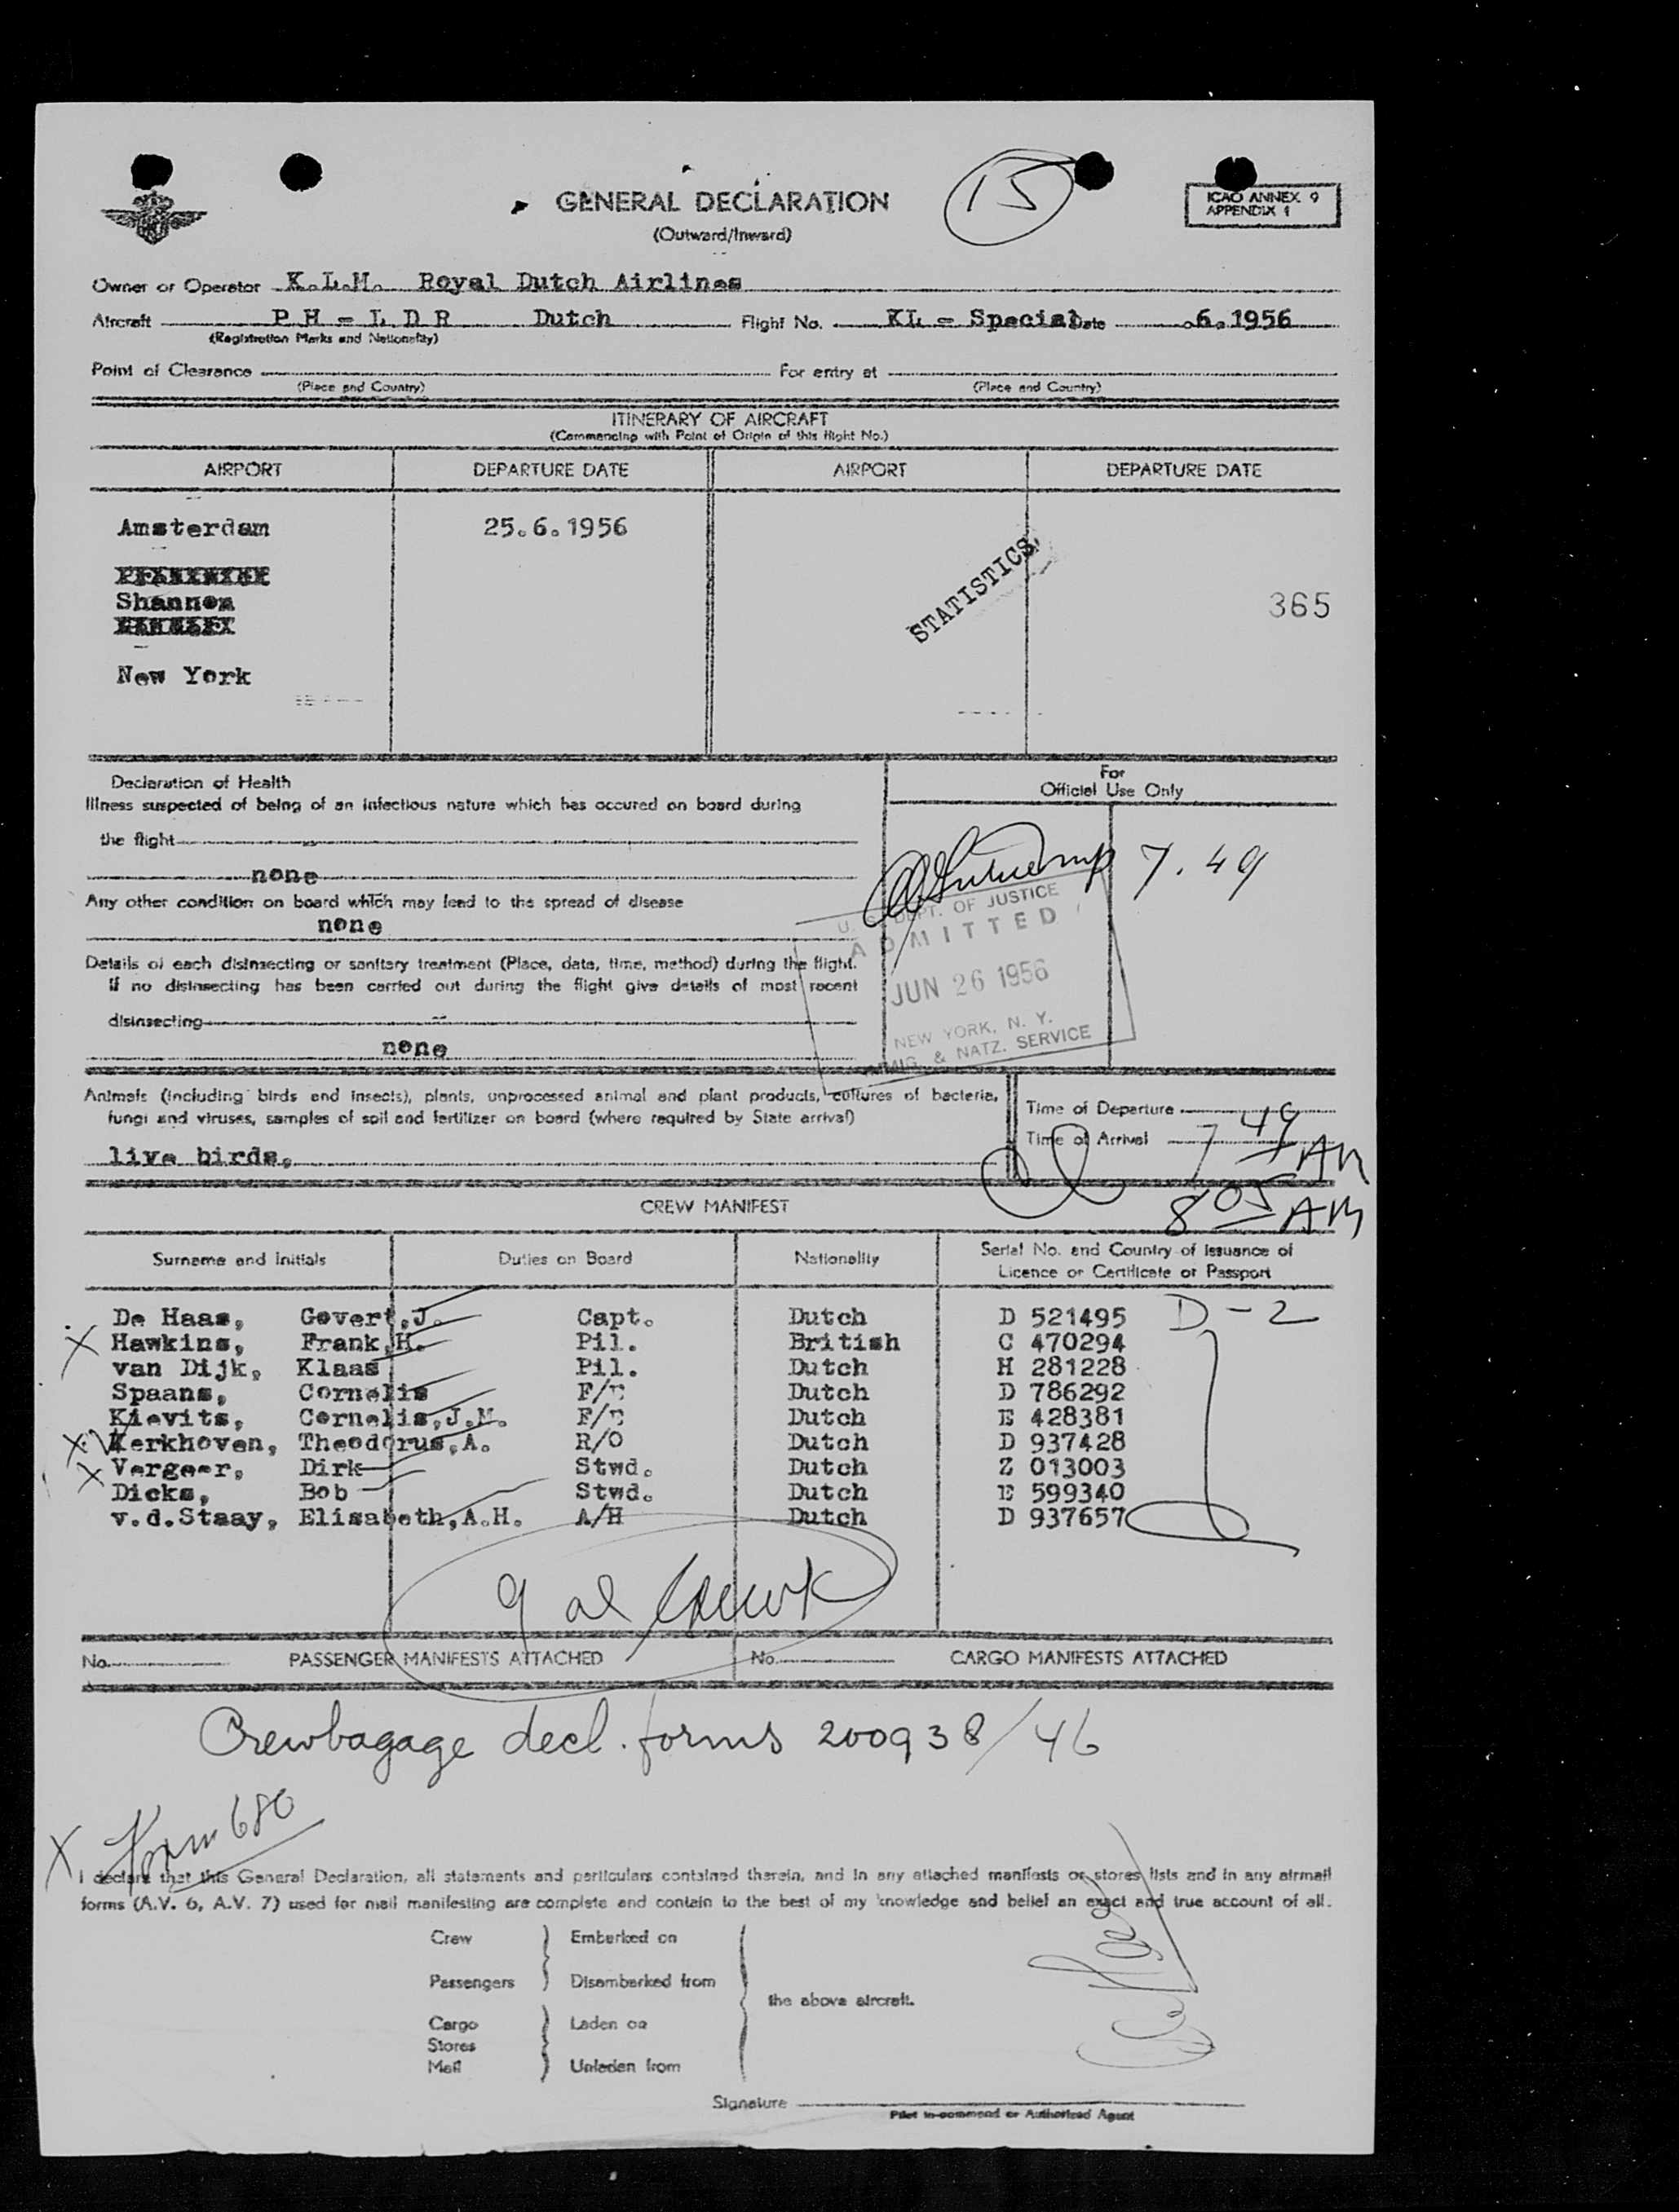 GENERAL DECLARATION
15
ICAO ANNEX 9
APPENDIX 1
(Outward/Inward)
Owner or Operator K.L.M. Royal Dutch Airlines
Aircraft P H - L D R Dutch Flight No. KL - Special Date .6.1956
(Registration Marks and Nationality)
Point of Clearance For entry at
(Place and Country) (Place and Country)
ITINERARY OF AIRCRAFT
(Commencing with Point of Origin of this flight No.)
AIRPORT DEPARTURE DATE AIRPORT DEPARTURE DATE
Amsterdam 25.6.1956
STATISTICS
Shannon 365
New York
Declaration of Health
For
Official Use Only
Illness suspected of being of an infectious nature which has occured on board during
the flight
none
7.49
Any other condition on board which may lead to the spread of disease
none
U. S. DEPT. OF JUSTICE
ADMITTED
JUN 26 1956
NEW YORK, N. Y.
IMMIG. & NATZ. SERVICE
Details of each disinsecting or sanitary treatment (Place, date, time, method) during the flight.
If no disinsecting has been carried out during the flight give details of most recent
disinsecting
none
Animals (including birds and insects), plants, unprocessed animal and plant products, cultures of bacteria,
fungi and viruses, samples of soil and fertilizer on board (where required by State arrival)
live birds.
Time of Departure
Time of Arrival 7 49 AM
8 05 AM
CREW MANIFEST
Surname and Initials Duties on Board Nationality Serial No. and Country of Issuance of
Licence or Certificate or Passport
De Haas, Govert,J. Capt. Dutch D 521495 D-2
X Hawkins, Frank,H. Pil. British C 470294
van Dijk, Klaas Pil. Dutch H 281228
Spaans, Cornelis F/E Dutch D 786292
Kievits, Cornelis,J.M. F/E Dutch E 428381
X Kerkhoven, Theodorus,A. R/O Dutch D 937428
X Vergeer, Dirk Stwd. Dutch Z 013003
Dicks, Bob Stwd. Dutch E 599340
v.d.Staay, Elisabeth,A.H. A/H Dutch D 937657
9 al
No. PASSENGER MANIFESTS ATTACHED No. CARGO MANIFESTS ATTACHED
Crewbagage decl. forms 200938/46
X Form 680
I declare that this General Declaration, all statements and particulars contained therein, and in any attached manifests or stores lists and in any airmail
forms (A.V. 6, A.V. 7) used for mail manifesting are complete and contain to the best of my knowledge and belief an exact and true account of all.
Crew Embarked on
Passengers Disembarked from
the above aircraft.
Cargo Laden on
Stores
Mail Unladen from
Signature
Pilot in-command or Authorised Agent